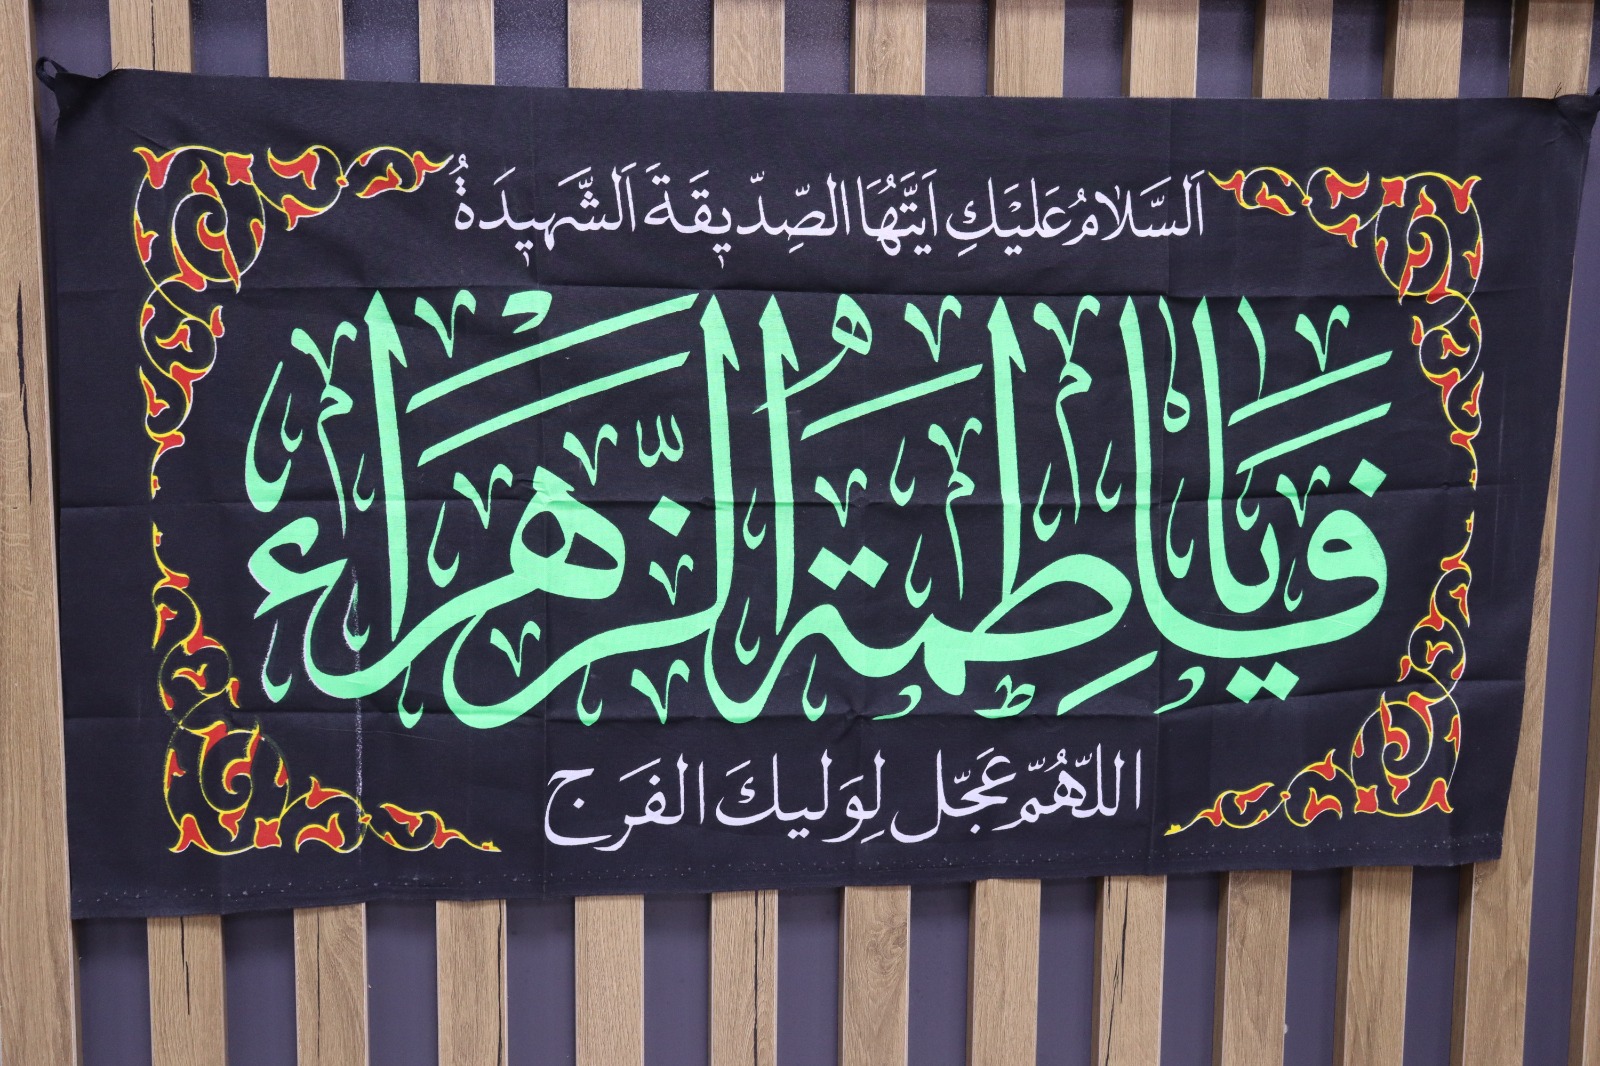 اَلسَّلامُ عَلَيْكِ اَيَّتُهَا الصِّدّيقَةَ اَلشَّهيدَةُ
يا فاطِمَةُ الزَّهراء
اللهُمّ عَجّل لِوَليكَ الفَرَج